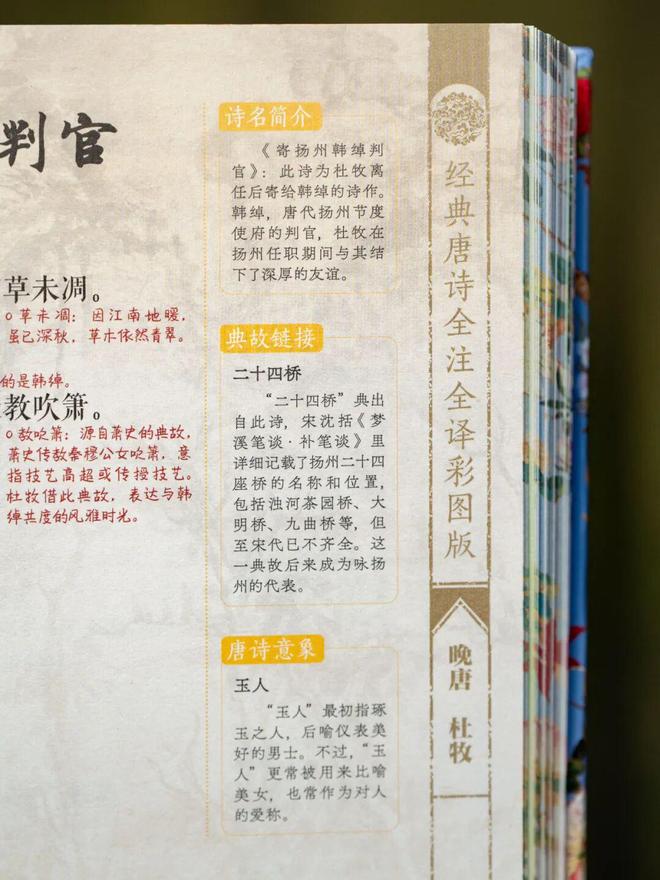 判官
草未凋。
草未凋：因江南地暖，
虽已深秋，草木依然青翠。
的是韩绰。
教吹箫。
教吹箫：源自萧史的典故，
萧史传教秦穆公女吹箫，意
指技艺高超或传授技艺。
杜牧借此典故，表达与韩
绰共度的风雅时光。
诗名简介
《寄扬州韩绰判
官》：此诗为杜牧离
任后寄给韩绰的诗作。
韩绰，唐代扬州节度
使府的判官，杜牧在
扬州任职期间与其结
下了深厚的友谊。
典故链接
二十四桥
“二十四桥”典出
自此诗，宋沈括《梦
溪笔谈·补笔谈》里
详细记载了扬州二十四
座桥的名称和位置，
包括浊河茶园桥、大
明桥、九曲桥等，但
至宋代已不齐全。这
一典故后来成为咏扬
州的代表。
唐诗意象
玉人
“玉人”最初指琢
玉之人，后喻仪表美
好的男士。不过，“玉
人”更常被用来比喻
美女，也常作为对人
的爱称。
经典唐诗全注全译彩图版
晚唐 杜牧